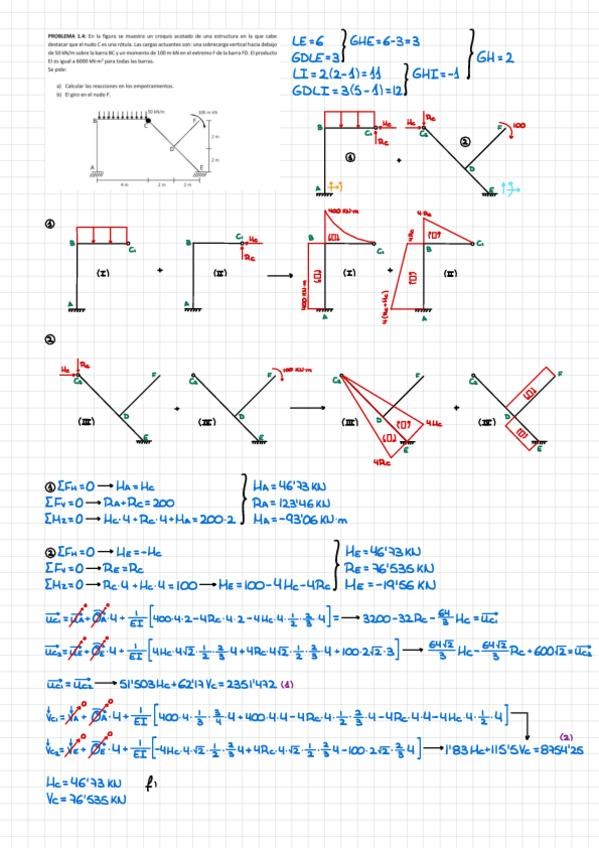 PROBLEMA 1.4: En la figura se muestra un croquis acotado de una estructura en la que cabe
destacar que el nudo C es una rótula. Las cargas actuantes son: una sobrecarga vertical hacia debajo
de 50 kN/m sobre la barra BC y un momento de 100 m·kN en el extremo F de la barra FD. El producto
EI es igual a 6000 kN·m² para todas las barras.
Se pide:
a) Calcular las reacciones en los empotramientos.
b) El giro en el nudo F.
LE=6
GDLE=3
GHE=6-3=3
LI=2(2-1)=11
GDLI=3(5-1)=12
GHI=-1
GH=2
50 kN/m
100 m·kN
B C F D A E
2 m
2 m
4 m 2 m 2 m
B C1 Hc Rc A ①
+
Hc Rc C2 F 100 D E ②
①
B C1 A (I)
+
B C1 Hc Rc A (II)
400 KN·m B C1 A (I) 400 KN·m
+
4Rc B C1 A (II) 4Rc 4(Rc+Hc)
②
Hc Rc C2 F D E (III)
+
C2 F 100 KN·m D E (IV)
C2 D E (III) 4Hc 4Rc
+
C2 F D E (IV)
①ΣFH=0 → HA=Hc
ΣFV=0 → RA+Rc=200
ΣMz=0 → Hc·4+Rc·4+MA=200·2
HA=46'73 KN
RA=123'46 KN
MA=-93'06 KN·m
②ΣFH=0 → HE=-Hc
ΣFV=0 → RE=Rc
ΣMz=0 → Rc·4+Hc·4=100 → ME=100-4Hc-4Rc
HE=46'73 KN
RE=76'535 KN
ME=-19'56 KN·m
uc1=uA+ØA·4+1/EI[400·4·2-4Rc·4·2-4Hc·4·1/2·2/3·4]= → 3200-32Rc-64/3Hc=uc1
uc2=uE+ØE·4+1/EI[4Hc·4√2·1/2·2/3·4+4Rc·4√2·1/2·2/3·4+100·2√2·3] → 64√2/3Hc-64√2/3Rc+600√2=uc2
uc1=uc2 → 51'503Hc+62'17Vc=2351'472 (1)
Vc1=VA+ØA·4+1/EI[400·4·1/3·3/4·4+400·4·4-4Rc·4·1/2·2/3·4-4Rc·4·4-4Hc·4·1/2·4]
Vc2=VE+ØE·4+1/EI[-4Hc·4√2·1/2·2/3·4+4Rc·4√2·1/2·2/3·4-100·2√2·3/4·4] → 1'83Hc+115'5Vc=8754'25 (2)
Hc=46'73 KN
Vc=76'535 KN